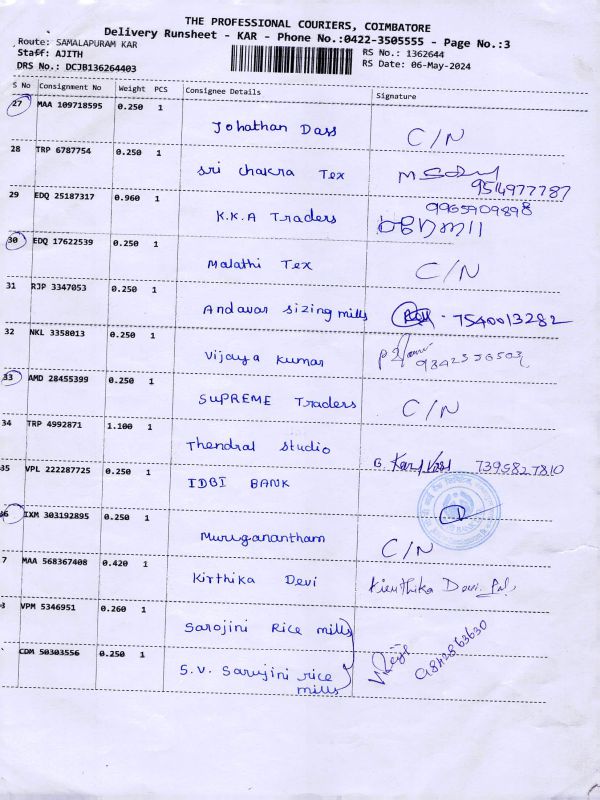 THE PROFESSIONAL COURIERS, COIMBATORE
Delivery Runsheet - KAR - Phone No.:0422-3505555 - Page No.:3
Route: SAMALAPURAM KAR
RS No.: 1362644
Staff: AJITH
RS Date: 06-May-2024
DRS No.: DCJB136264403
S No Consignment No Weight PCS Consignee Details Signature
27 MAA 109718595 0.250 1
Johathan Dass C/N
28 TRP 6787754 0.250 1
Sri chakra Tex 9514977787
29 EDQ 25187317 0.960 1
9965909898
K.K.A Traders
30 EDQ 17622539 0.250 1
Malathi Tex C/N
31 RJP 3347053 0.250 1
Andavar sizing mills 7540013282
32 NKL 3358013 0.250 1
Vijaya Kumar
33 AMD 28455399 0.250 1
SUPREME Traders C/N
34 TRP 4992871 1.100 1
Thendral studio 7395827810
35 VPL 222287725 0.250 1
IDBI BANK
36 IXM 303192895 0.250 1
Muruganantham C/N
7 MAA 568367408 0.420 1
Kirthika Devi Kieuthika Devi
VPM 5346951 0.260 1
Sarojini Rice mills
CDM 50303556 0.250 1
S.V. Sarojini rice
mills
9842863630